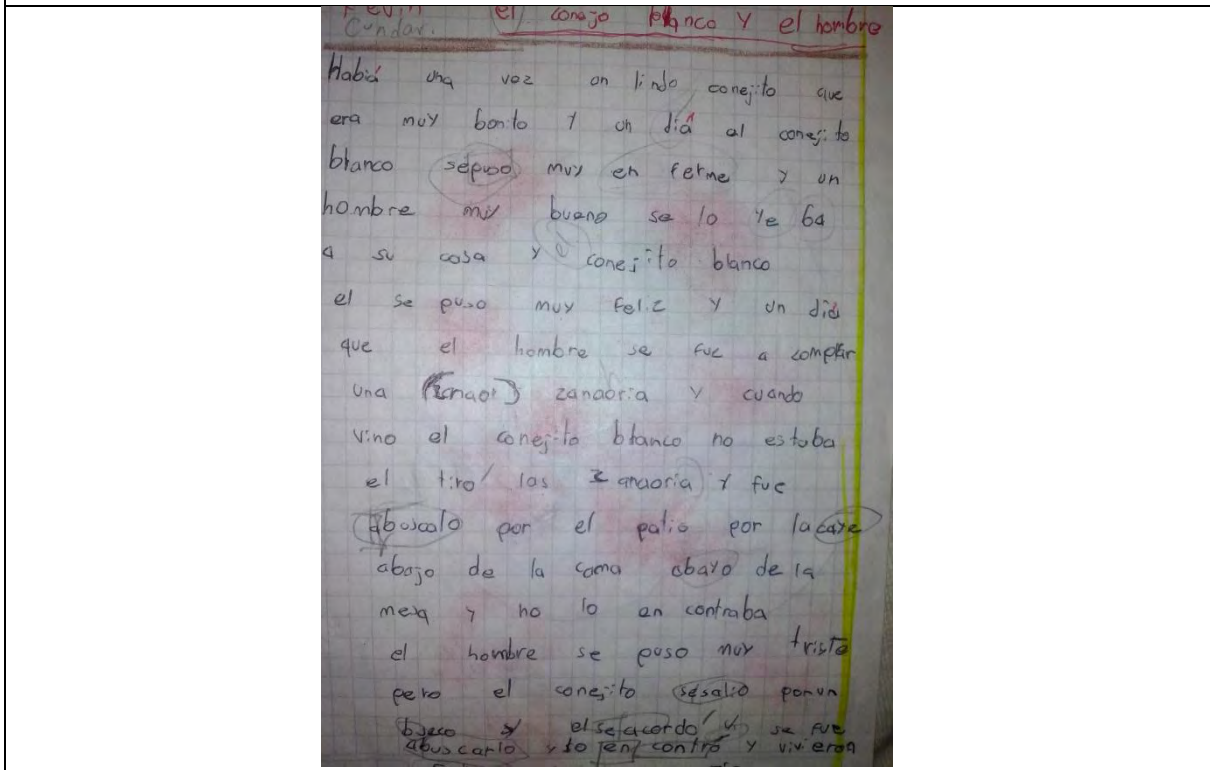 Kevin el conejo blanco y el hombre
Cundar.
Habiá una vez on lindo conejito que
era muy bonito y un diá al conejito
blanco sepuso muy en ferme y un
hombre muy bueno se lo ye ba
a su casa y el conejito blanco
el se puso muy feliz y un diá
que el hombre se fue a complar
una zanaoria y cuando
vino el conejito blanco no estaba
el tiro las zanaoria y fue
abuscalo por el patio por la caye
abajo de la cama abayo de la
mesa y no lo en contraba
el hombre se puso muy triste
pero el conejito sesalio por un
y el seacordo y se fue
abuscarlo y lo en contró y vivieron